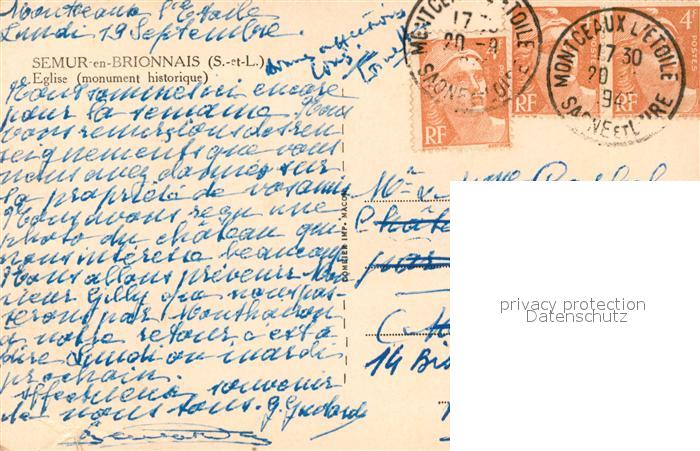 Montceaux l'Etoile
Lundi 19 Septembre.
SEMUR-en-BRIONNAIS (S.-et-L.)
Eglise (monument historique)
Nous sommes ici encore
pour la semaine. Nous
vous remercions des ren
seignements que vous
nous avez donnés sur
la propriété de vos amis
Nous avons reçu une
photo du château qui
nous intéresse beaucoup
Nous allons prévenir Mon
sieur Gilly que nous pas-
serons par Montharon
à notre retour, c'est à
dire Lundi ou mardi
prochain.
Affectueux souvenir
de nous tous. G.
bonnes affections
à tous
MONTCEAUX L'ETOILE
17 30
20 -9
SAONE ET LOIRE
MONTCEAUX L'ETOILE
17 30
20
194
SAONE ET LOIRE
RF
RF
RF
4F
POSTES
COMBIER IMP. MACON
Mr
Châte
par
14
privacy protection
Datenschutz